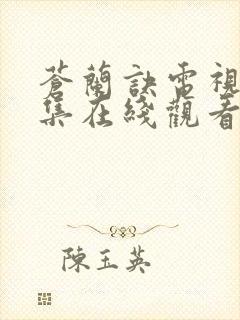 蒼蘭訣電視
集在綫觀看
陳玉英